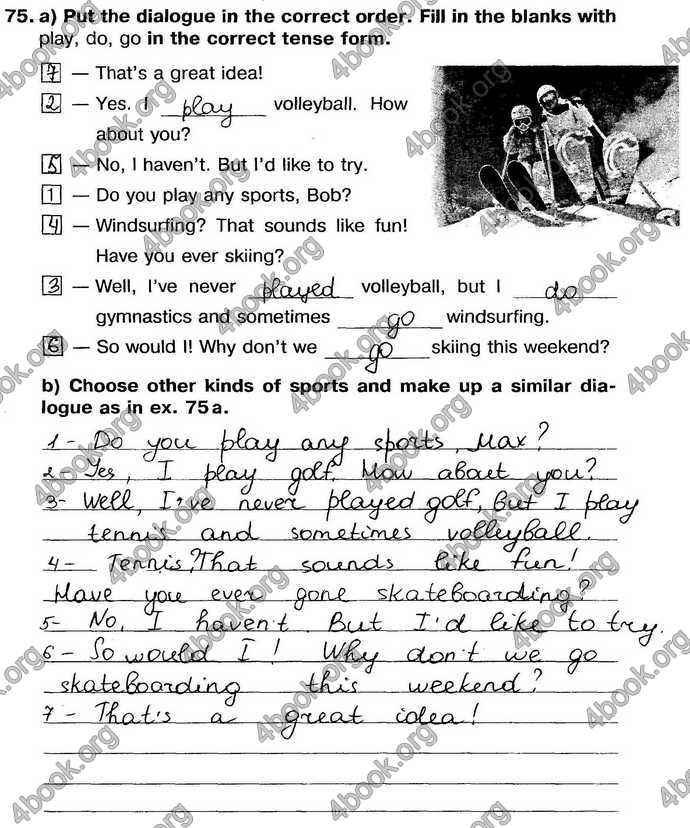 75. a) Put the dialogue in the correct order. Fill in the blanks with
play, do, go in the correct tense form.
7 — That's a great idea!
2 — Yes. I play volleyball. How
about you?
5 — No, I haven't. But I'd like to try.
1 — Do you play any sports, Bob?
4 — Windsurfing? That sounds like fun!
Have you ever skiing?
3 — Well, I've never played volleyball, but I do
gymnastics and sometimes go windsurfing.
6 — So would I! Why don't we go skiing this weekend?
b) Choose other kinds of sports and make up a similar dia-
logue as in ex. 75a.
1 - Do you play any sports, Max?
2 - Yes, I play golf. How about you?
3 - Well, I've never played golf, but I play
tennis and sometimes volleyball.
4 - Tennis? That sounds like fun!
Have you ever gone skateboarding?
5 - No, I haven't. But I'd like to try.
6 - So would I! Why don't we go
skateboarding this weekend?
7 - That's a great idea!
4book.org